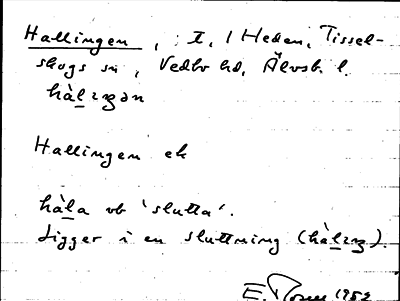 Hallingen, : I, 1 Heden, Tissel-
skogs sn, Vedbo hd, Älvsb. l.
hàlıŋən
Hallingen ek
hàla vb 'slutta'.
Ligger i en sluttning (hàlıŋ).
E. 1952